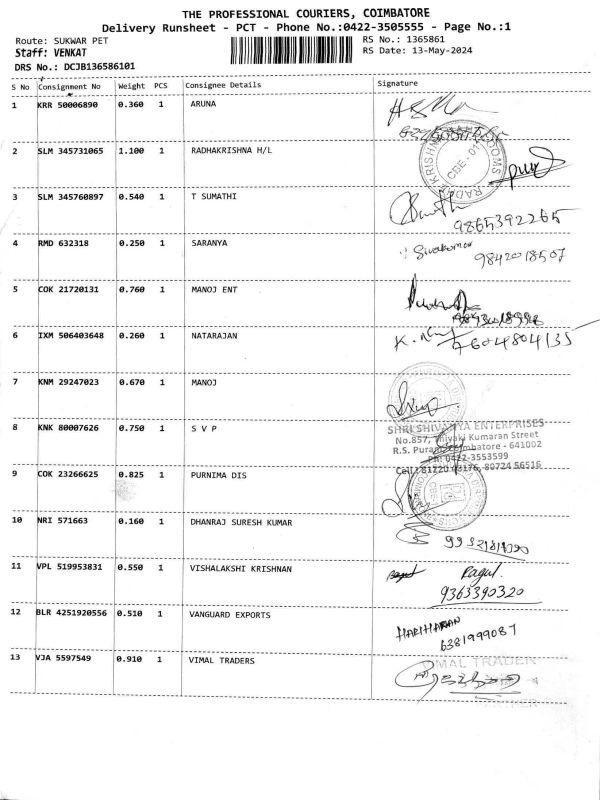 THE PROFESSIONAL COURIERS, COIMBATORE
Delivery Runsheet - PCT - Phone No.:0422-3505555 - Page No.:1
Route: SUKWAR PET RS No.: 1365861
Staff: VENKAT RS Date: 13-May-2024
DRS No.: DCJB136586101
S No Consignment No Weight PCS Consignee Details Signature
1 KRR 50006890 0.360 1 ARUNA
2 SLM 345731065 1.100 1 RADHAKRISHNA H/L
CBE - 01
3 SLM 345760897 0.540 1 T SUMATHI
9865392265
4 RMD 632318 0.250 1 SARANYA Sivakumar
9842018507
5 COK 21720131 0.760 1 MANOJ ENT
6 IXM 506403648 0.260 1 NATARAJAN
7604804135
7 KNM 29247023 0.670 1 MANOJ
8 KNK 80007626 0.750 1 S V P SHRI SHIVANYA ENTERPRISES
No.857, Thiyaki Kumaran Street
R.S. Puram, Coimbatore - 641002
Ph: 0422-3553599
Cell: 81220 43176, 80724 56516
9 COK 23266625 0.825 1 PURNIMA DIS
10 NRI 571663 0.160 1 DHANRAJ SURESH KUMAR
11 VPL 519953831 0.550 1 VISHALAKSHI KRISHNAN Ragul.
9363390320
12 BLR 4251920556 0.510 1 VANGUARD EXPORTS HARIHARAN
6381999087
13 VJA 5597549 0.910 1 VIMAL TRADERS VIMAL TRADER